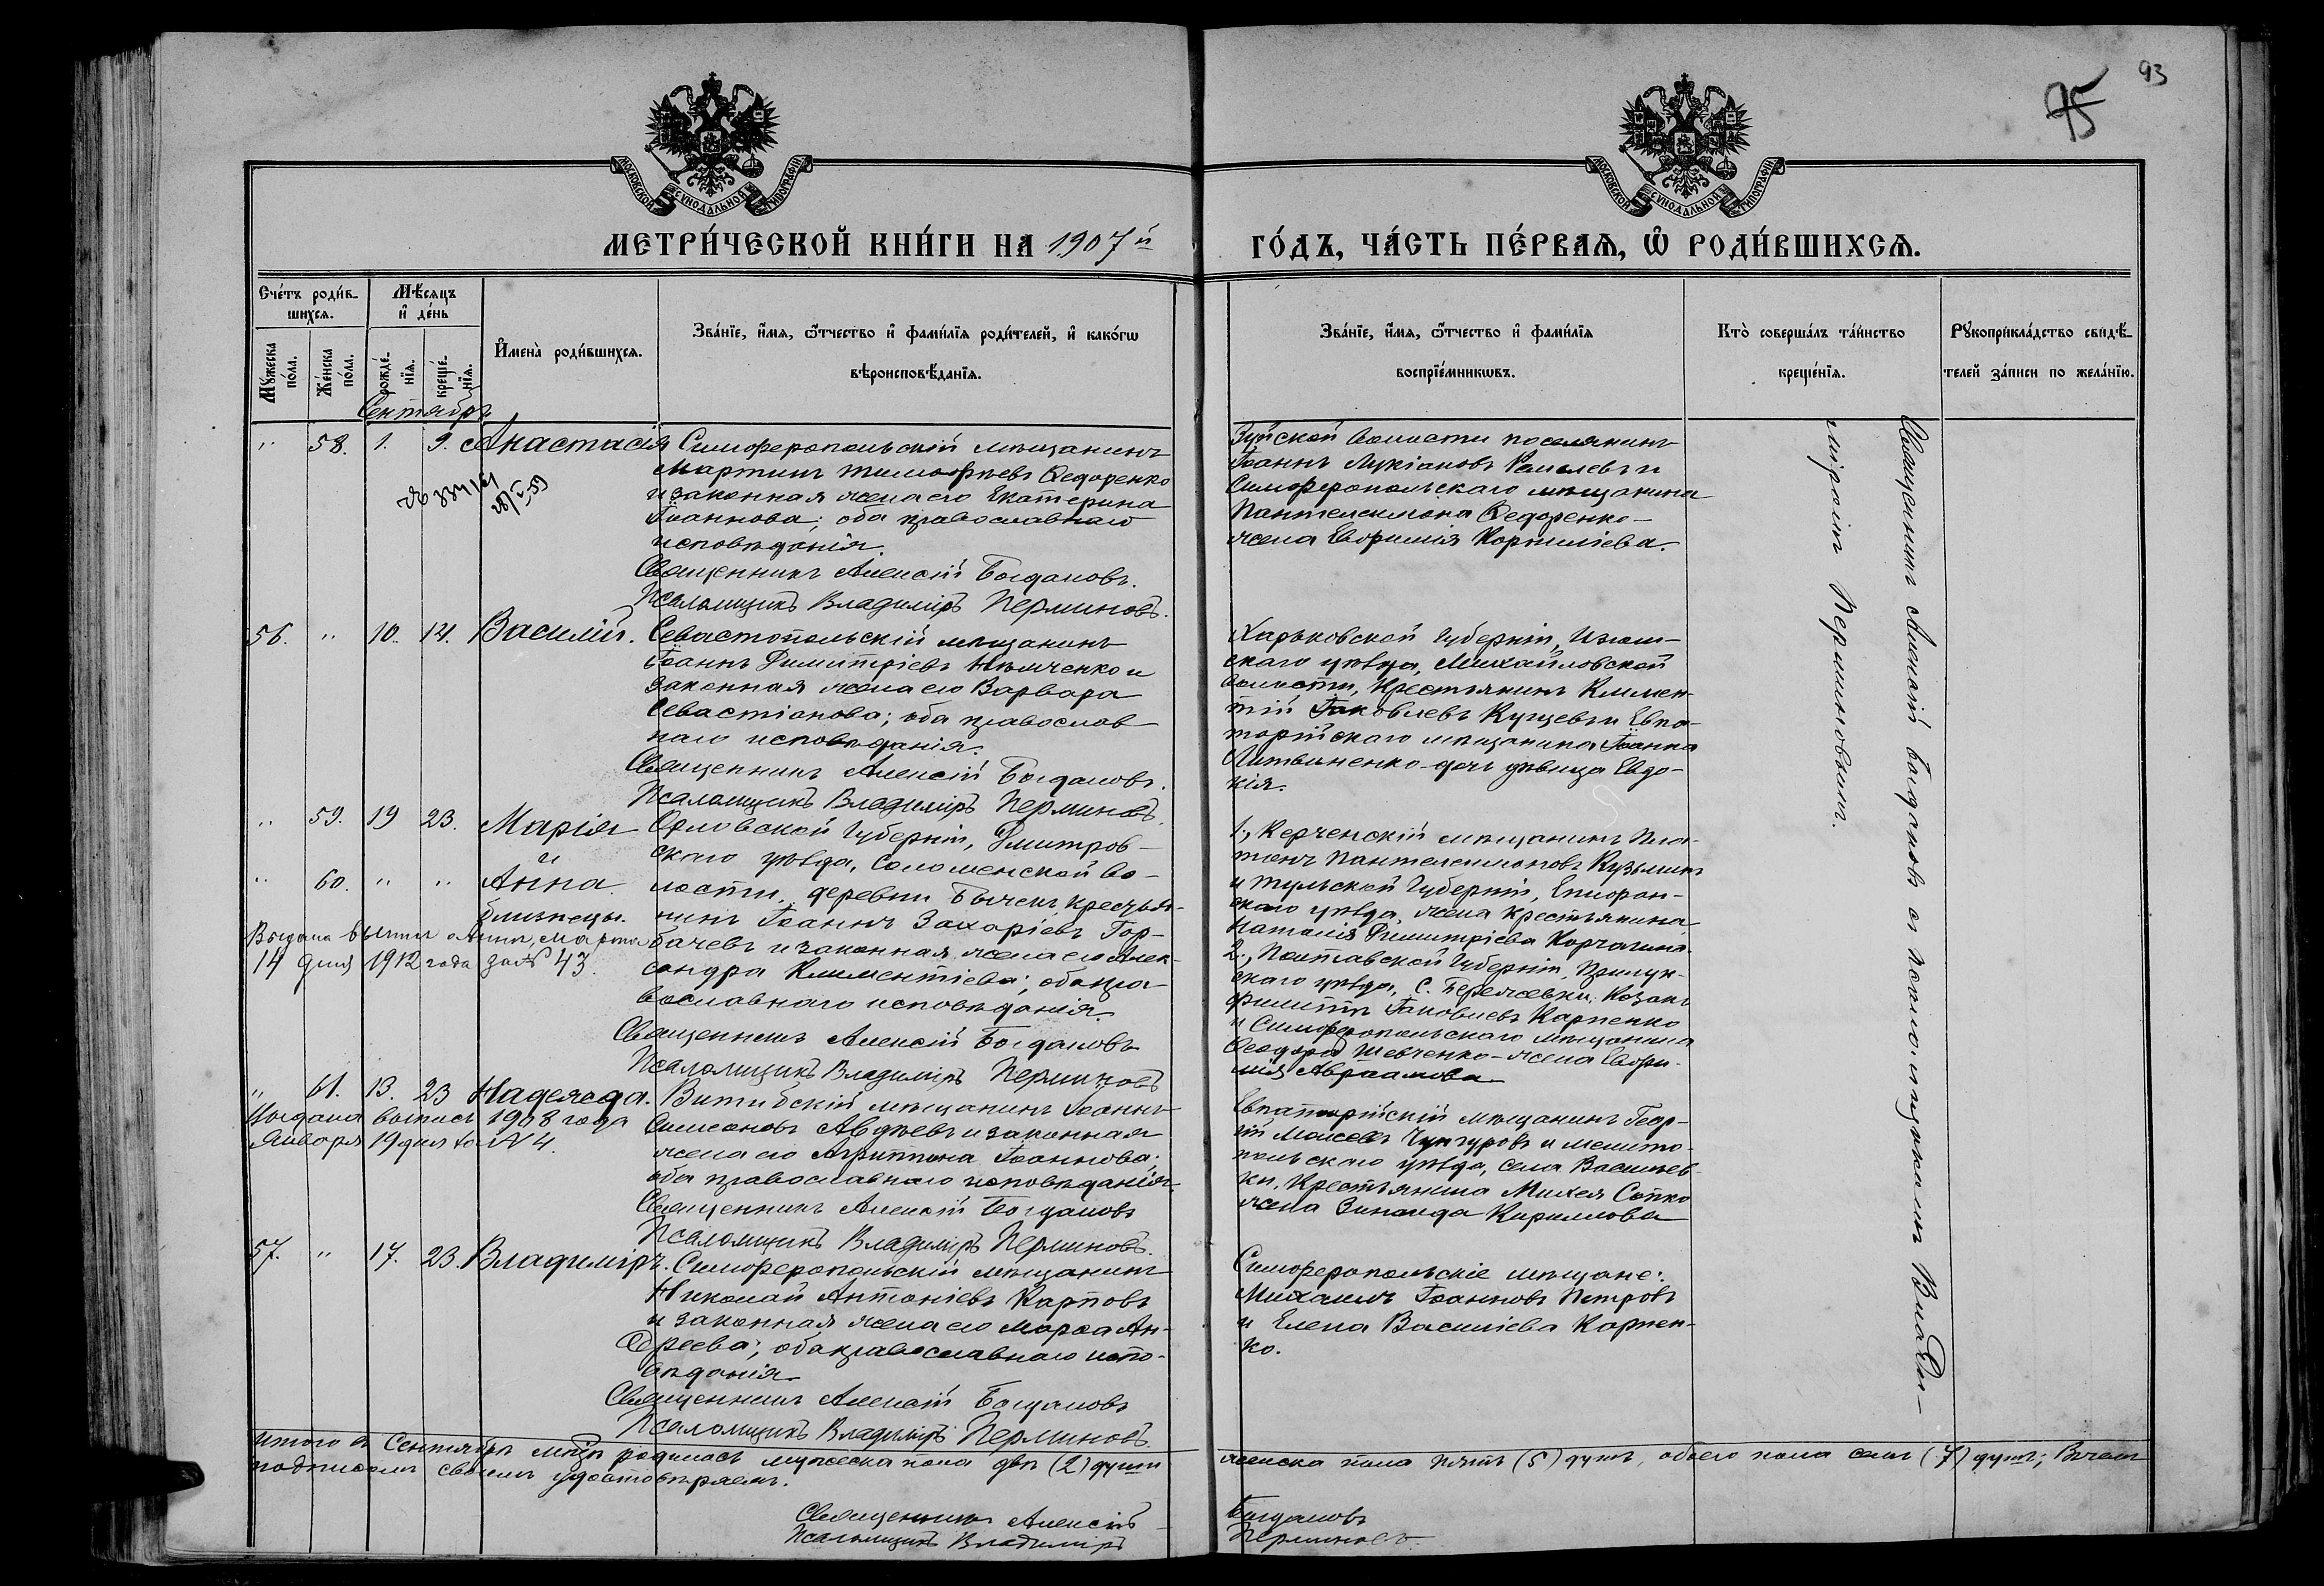 93
95
МОСКОВСКОЙ СѴНОДАЛЬНОЙ ТИПОГРАФІИ
МОСКОВСКОЙ СѴНОДАЛЬНОЙ ТИПОГРАФІИ
МЕТРИ́ЧЕСКОЙ КНИ́ГИ НА 1907й
ГО́ДЪ, ЧА́СТЬ ПЕ́РВАЯ, Ѡ҆ РОДИ́ВШИХСЯ.
Сче́тъ роди́в-
шихся.
Мужеска по́ла.
Же́нска по́ла.
Мѣ́сяцъ и҆ де́нь
рожде́-нїя.
креще́-нїя.
И҆мена̀ роди́вшихся.
Зва́нїе, и҆́мя, ѻ҆́тчество и҆ фами́лїя роди́телей, и҆ како́гѡ
вѣроисповѣ́данїя.
Зва́нїе, и҆́мя, ѻ҆́тчество и҆ фами́лїя
воспрїе́мникѡвъ.
Кто̀ соверша́лъ та́инство
креще́нїя.
Рꙋкоприкла́дство свидѣ́-
телей за́писи по жела́нїю.
Сентябрь
" 58. 1. 9. Анастасія
Симферопольскій мѣщанинъ
Мартинъ Тимоѳеевъ Ѳедоренко
и законная жена его Екатерина
Іоаннова; оба православнаго
исповѣданія.
Священникъ Алексій Богдановъ.
Псаломщикъ Владиміръ Перминовъ.
Зуйской волости поселянинъ
Іоаннъ Лукіановъ и
Симферопольскаго мѣщанина
Пантелеимона Ѳедоренко-
жена Евфимія Корниліева.
56. " 10. 14. Василій.
Севастопольскій мѣщанинъ
Іоаннъ Димитріевъ Нѣмченко и
законная жена его Варвара
Севастіанова; оба православ-
наго исповѣданія.
Священникъ Алексій Богдановъ.
Псаломщикъ Владиміръ Перминовъ.
Харьковской губерніи, Изюм-
скаго уѣзда, Михайловской
волости, крестьянинъ Климен-
тій Іаковлевъ Купцевъ и Евпа-
торійскаго мѣщанина Іоанна
Литвиненко-дочь дѣвица Евдо-
кія.
" 59. 19 23. Марія
и
" 60. " " Анна.
близнецы.
Выдана выпись Анны, Марта
14 дня 1912 года за № 43.
Орловской губерніи, Дмитров-
скаго уѣзда, Соломенской во-
лости, деревни Бычекъ, крестья-
нинъ Іоаннъ Захаріевъ Гор-
бачевъ и законная жена его Алек-
сандра Климентіева; оба пра-
вославнаго исповѣданія.
Священникъ Алексій Богдановъ
Псаломщикъ Владиміръ Перминовъ
1., Керченскій мѣщанинъ Пла-
тонъ Пантелеимоновъ Кузьминъ
и Тульской губерніи, Епифан-
скаго уѣзда, жена крестьянина
Наталія Димитріева Корчагина.
2., Полтавской губерніи, Прилук-
скаго уѣзда, с. Бережовки, козакъ
Филиппъ Іаковлевъ Карпенко
и Симферопольскаго мѣщанина
Ѳеодора Шевченко-жена Евфи-
мія Авраамова
" 61. 13. 23 Надежда.
Выдана выпись 1908 года
Января 19 дня за № 4.
Витебскій мѣщанинъ Іоаннъ
Симеоновъ Авдѣевъ и законная
жена его Агриппина Іоаннова;
оба православнаго исповѣданія.
Священникъ Алексій Богдановъ
Псаломщикъ Владиміръ Перминовъ.
Евпаторійскій мѣщанинъ Геор-
гій Моисеевъ Чунгуровъ и Мелито-
польскаго уѣзда, села Васильев-
ки, крестьянина Михея Сопко
жена Зинаида Кириллова
57. " 17. 23. Владиміръ.
Симферопольскій мѣщанинъ
Николай Антоніевъ Карповъ
и законная жена его Марѳа Ан-
дреева; оба православнаго испо-
вѣданія.
Священникъ Алексій Богдановъ
Псаломщикъ Владиміръ Перминовъ.
Симферопольскіе мѣщане:
Михаилъ Іоанновъ Петровъ
и Елена Василіева Карпен-
ко.
Священникъ Алексій Богдановъ съ псаломщикомъ Влади-
міромъ Перминовымъ.
Итого въ Сентябрѣ мѣсцѣ родилось мужеска пола двѣ (2) души
женска пола пять (5) душъ, обоего пола семь (7) душъ; В чемъ
подписомъ своимъ удостовѣряемъ.
Священникъ Алексій Богдановъ
Псаломщикъ Владиміръ Перминовъ.